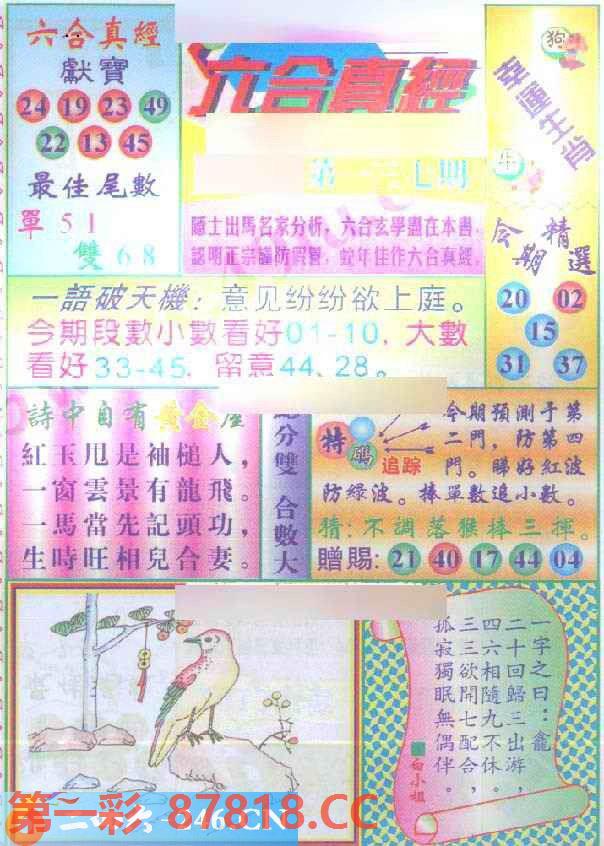 六合真經
獻寶
24 19 23 49
22 13 45
最佳尾數
單 51
雙 68
六合真經
第一三七期
隱士出馬名家分析，六合玄學盡在本書，
認明正宗謹防假冒，蛇年佳作六合真經，
狗
幸運生肖
牛
今期精選
20 02
15
31 37
一語破天機：意见纷纷欲上庭。
今期段數小數看好01-10，大數
看好33-45，留意44、28。
詩中自有黃金屋
紅玉甩是袖槌人，
一窗雲景有龍飛。
一馬當先記頭功，
生時旺相兒合妻。
分雙
合數大
特碼
追踪
今期預測于第
二門，防第四
門。睇好紅波
防綠波。捧單數追小數。
猜：不調落猴捧三揮。
贈賜：21 40 17 44 04
一字之曰：龕
二十回歸三出游，
四六相隨九不休。
三三欲開七配合，
孤寂獨眠無偶伴。
白小姐
第一彩 87818.CC
246.CN